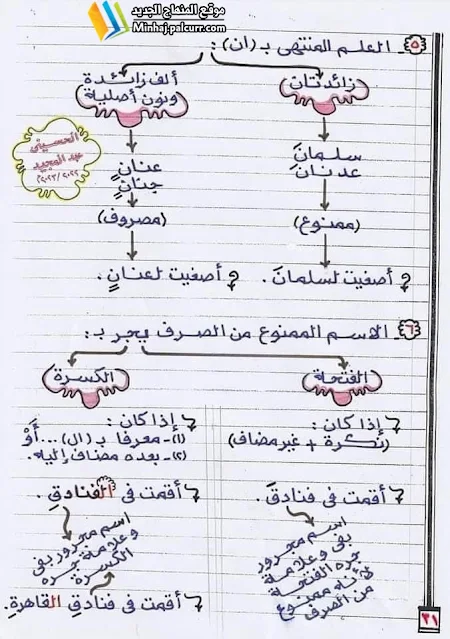 موقع المنهاج الجديد
Minhaj.palcurr.com
٥- العلم المنتهى بـ (ان) :
زائدتان
ألف زائدة
ونون أصلية
سلمانَ
عدنانَ
عنانٍ
جنانٍ
الحسينى
عبد المجيد
٢٠٢٢/٢٠٢٣م
(ممنوع)
(مصروف)
أصغيت لسلمانَ.
أصغيت لعنانٍ.
٦- الاسم الممنوع من الصرف يجر بـ:
الفتحة
الكسرة
إذا كان :
(نكرة + غير مضاف)
إذا كان :
(١)- معرفا بـ (ال)... أَوْ
(٢)- بعده مضاف إليه.
أقمت فى فنادقَ.
اسم مجرور
بفى وعلامة
جره الفتحة
لأنه ممنوع
من الصرف
أقمت فى الفنادقِ.
اسم مجرور بفى
وعلامة جره
الكسرة
أقمت فى فنادقِ القاهرةِ.
٣١